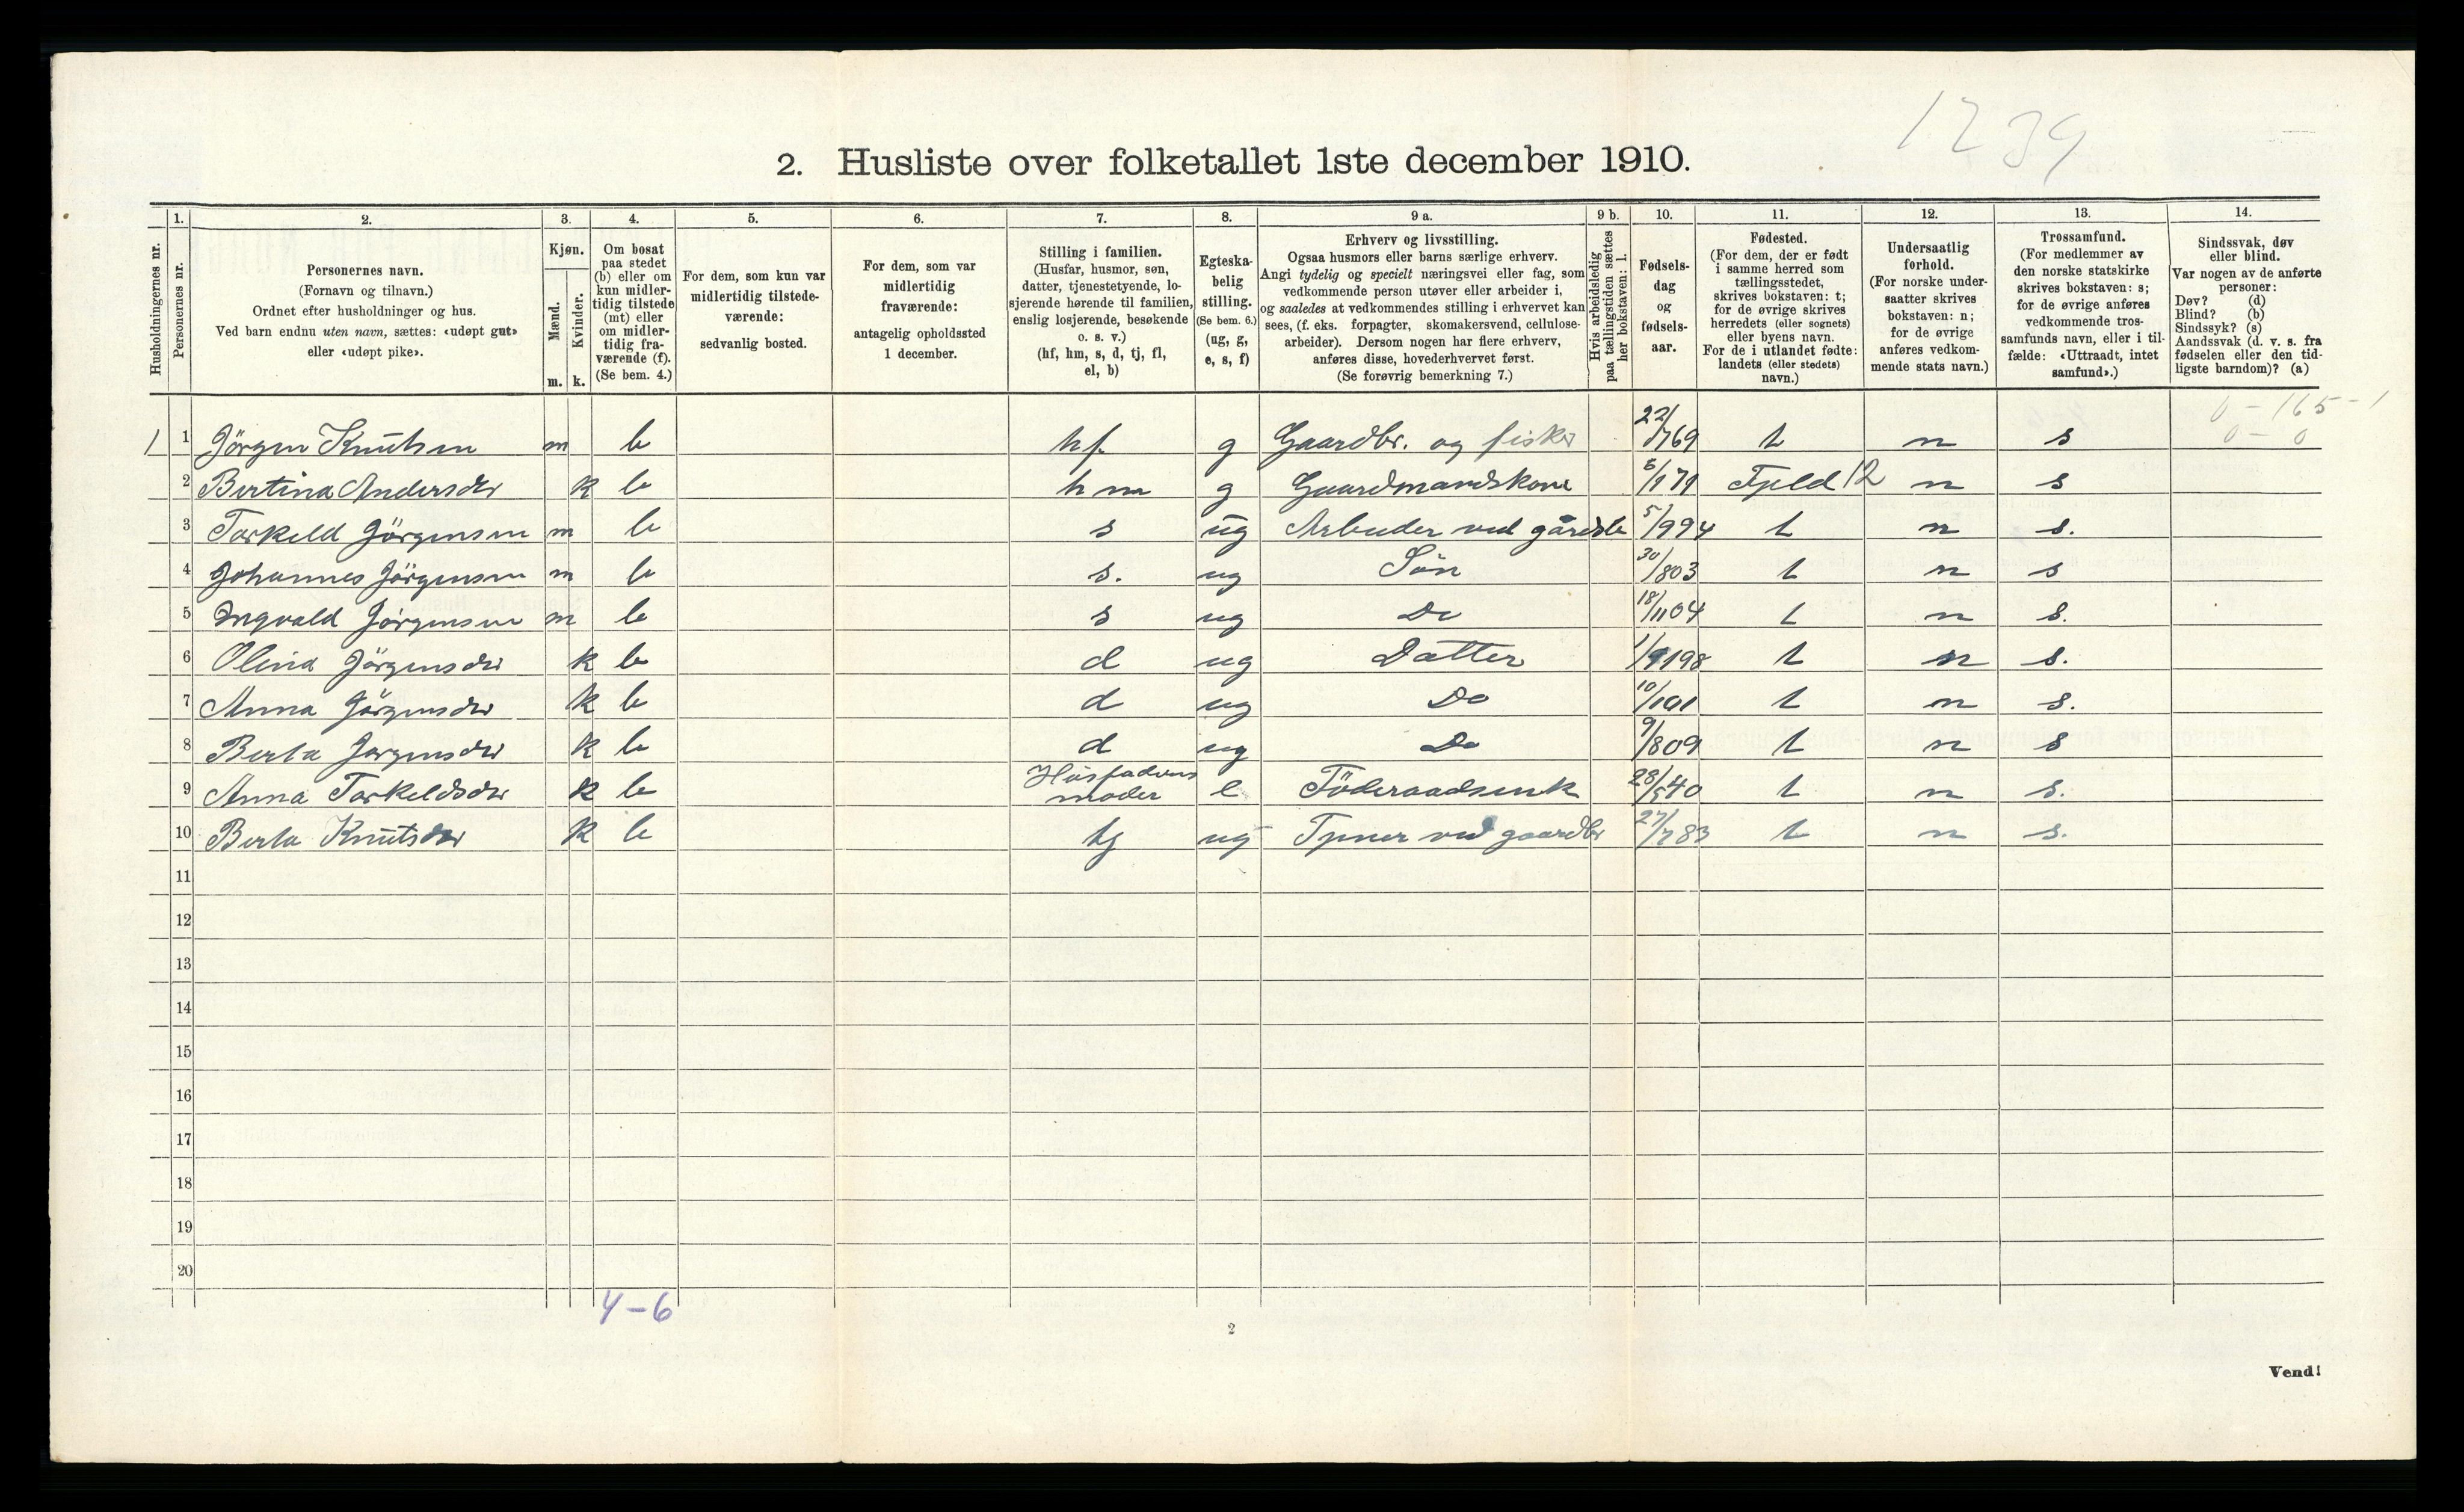 1239
2. Husliste over folketallet 1ste december 1910.
Husholdningernes nr.
1.
Personernes nr.
2.
Personernes navn.
(Fornavn og tilnavn.)
Ordnet efter husholdninger og hus.
Ved barn endnu uten navn, sættes: «udøpt gut»
eller «udøpt pike».
3.
Kjøn.
Mænd.
Kvinder.
m. k.
4.
Om bosat
paa stedet
(b) eller om
kun midler-
tidig tilstede
(mt) eller
om midler-
tidig fra-
værende (f).
(Se bem. 4.)
5.
For dem, som kun var
midlertidig tilstede-
værende:
sedvanlig bosted.
6.
For dem, som var
midlertidig
fraværende:
antagelig opholdssted
1 december.
7.
Stilling i familien.
(Husfar, husmor, søn,
datter, tjenestetyende, lo-
sjerende hørende til familien,
enslig losjerende, besøkende
o. s. v.)
(hf, hm, s, d, tj, fl,
el, b)
8.
Egteska-
belig
stilling.
(Se bem. 6.)
(ug, g,
e, s, f)
9 a.
Erhverv og livsstilling.
Ogsaa husmors eller barns særlige erhverv.
Angi tydelig og specielt næringsvei eller fag, som
vedkommende person utøver eller arbeider i,
og saaledes at vedkommendes stilling i erhvervet kan
sees, (f. eks. forpagter, skomakersvend, cellulose-
arbeider). Dersom nogen har flere erhverv,
anføres disse, hovederhvervet først.
(Se forøvrig bemerkning 7.)
9 b.
Hvis arbeidsledig
paa tællingstiden sættes
her bokstaven: l.
10.
Fødsels-
dag
og
fødsels-
aar.
11.
Fødested.
(For dem, der er født
i samme herred som
tællingsstedet,
skrives bokstaven: t;
for de øvrige skrives
herredets (eller sognets)
eller byens navn.
For de i utlandet fødte:
landets (eller stedets)
navn.)
12.
Undersaatlig
forhold.
(For norske under-
saatter skrives
bokstaven: n;
for de øvrige
anføres vedkom-
mende stats navn.)
13.
Trossamfund.
(For medlemmer av
den norske statskirke
skrives bokstaven: s;
for de øvrige anføres
vedkommende tros-
samfunds navn, eller i til-
fælde: «Uttraadt, intet
samfund».)
14.
Sindssvak, døv
eller blind.
Var nogen av de anførte
personer:
Døv? (d)
Blind? (b)
Sindssyk? (s)
Aandssvak (d. v. s. fra
fødselen eller den tid-
ligste barndom)? (a)
0 - 165 - 1
0 - 0
1 1 Jörgen Knutsen m b hf. g Gaardbr. og fisker 22/769 t n s
2 Bertina Andersdtr k b hm g Gaardmandskone 8/179 Fjeld 12 n s
3 Torkeld Jörgensen m b s ug Arbeider ved gårdsbr 5/994 t n s.
4 Johannes Jörgensen m b s. ug Sön 30/803 t n s
5 Ingvald Jörgensen m b s ug Do 18/1104 t n s.
6 Olina Jörgensdtr k b d ug Datter 1/1198 t n s.
7 Anna Jörgensdtr k b d ug Do 10/101 t n s.
8 Berta Jörgensdtr k b d ug Do 9/809 t n s
9 Anna Torkeldsdtr k b Husfaderens moder e Föderaadsenk 28/540 t n s.
10 Berta Knutsdtr k b tj ug Tjener ved gaardbr 27/783 t n s.
11
12
13
14
15
16
17
18
19
20
4-6
2
Vend!